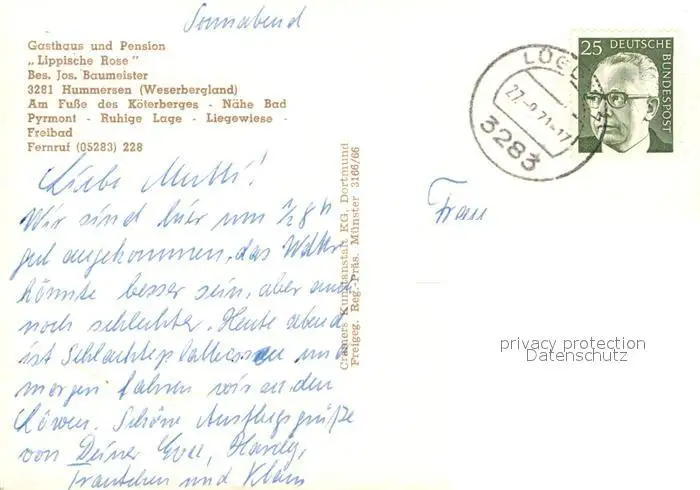 Sonnabend
Gasthaus und Pension
„Lippische Rose"
Bes. Jos. Baumeister
3281 Hummersen (Weserbergland)
Am Fuße des Köterberges - Nähe Bad
Pyrmont - Ruhige Lage - Liegewiese -
Freibad
Fernruf (05283) 228
Liebe Mutti!
Wir sind hier um ½ 8 h
gut angekommen, das Wetter
könnte besser sein, aber auch
noch schlechter. Heute abend
ist Schlachteplattenessen und
morgen fahren wir zu den
Löwen. Schöne Ausflugsgrüße
von Deiner Evel, Hardy,
Trautchen und Klaus
Cramers Kunstanstalt KG, Dortmund
Freigeg. Reg.-Präs. Münster 3166/66
3283
25 DEUTSCHE
BUNDESPOST
Frau
privacy protection
Datenschutz